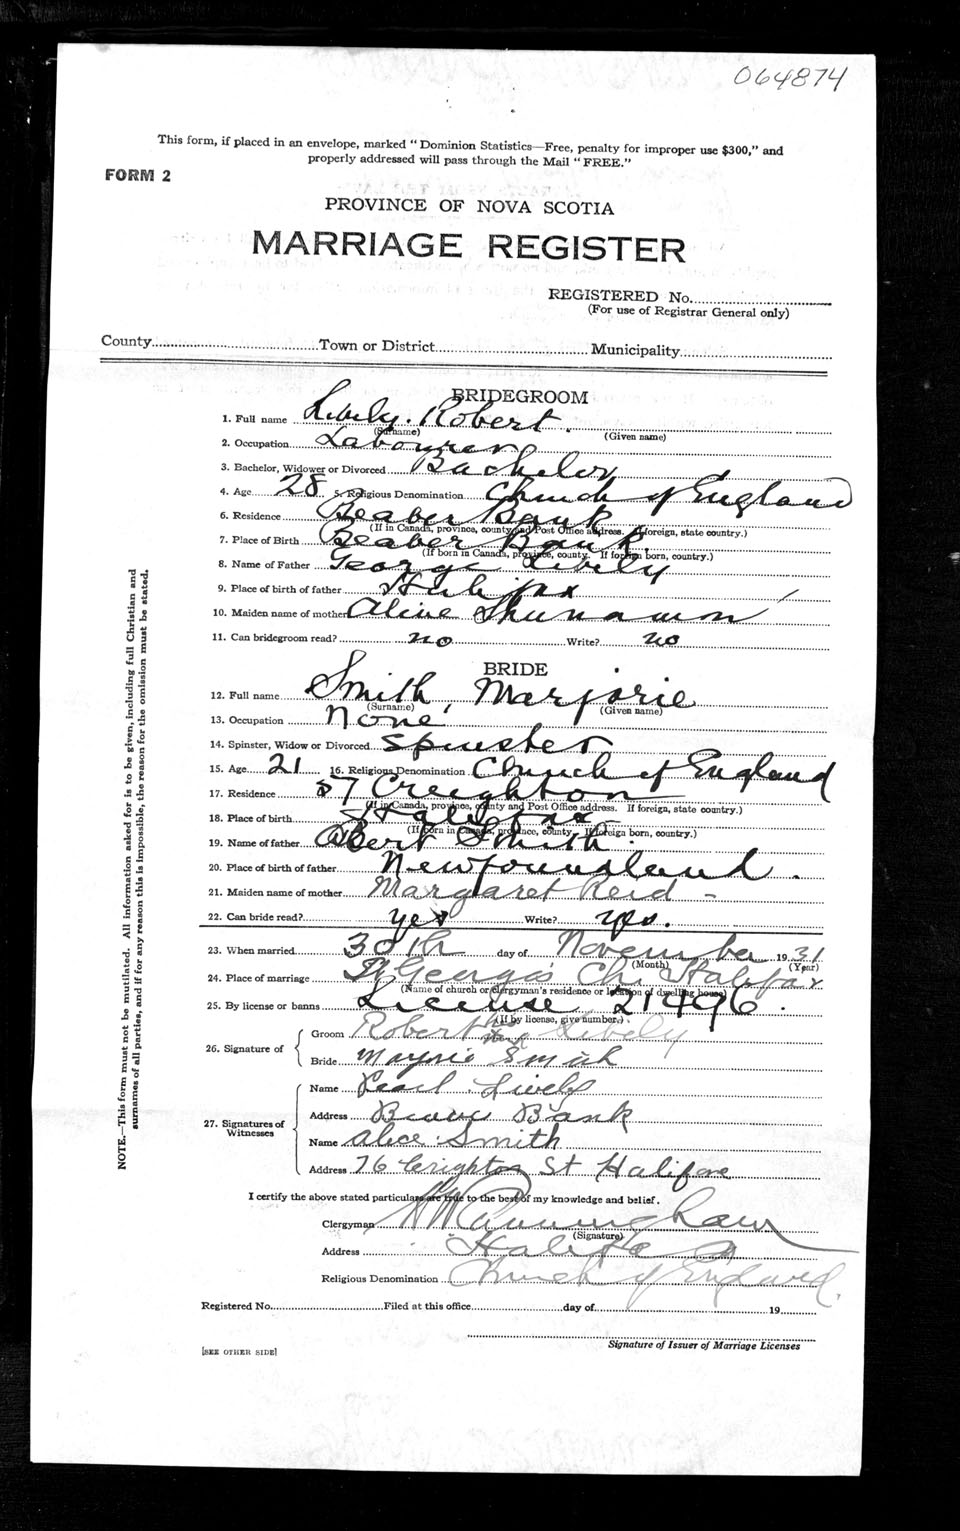 064874
This form, if placed in an envelope, marked "Dominion Statistics—Free, penalty for improper use $300," and
properly addressed will pass through the Mail "FREE."
FORM 2
PROVINCE OF NOVA SCOTIA
MARRIAGE REGISTER
REGISTERED No.
(For use of Registrar General only)
County Town or District Municipality
BRIDEGROOM
1. Full name Lively. Robert.
(Surname) (Given name)
2. Occupation Labourer
3. Bachelor, Widower or Divorced Bachelor
4. Age 28 5. Religious Denomination Church of England
6. Residence Beaber Bank
(If in Canada, province, county and Post Office address. If foreign, state country.)
7. Place of Birth Beaber Bank
(If born in Canada, province, county. If foreign born, country.)
8. Name of Father George Lively
9. Place of birth of father Halifax
10. Maiden name of mother
11. Can bridegroom read? no Write? no
BRIDE
12. Full name Smith, Marjorie
(Surname) (Given name)
13. Occupation None
14. Spinster, Widow or Divorced Spinster
15. Age 21 16. Religious Denomination Church of England
17. Residence 57 Creighton
(If in Canada, province, county and Post Office address. If foreign, state country.)
18. Place of birth Halifax
(If born in Canada, province, county. If foreign born, country.)
19. Name of father Albert Smith.
20. Place of birth of father Newfoundland.
21. Maiden name of mother Margaret Reid -
22. Can bride read? yes Write? yes.
23. When married 30th day of November 1931
(Month) (Year)
24. Place of marriage St George's Ch. Halifax
(Name of church or clergyman's residence or location of dwelling house)
25. By license or banns License 21496.
(If by license, give number.)
26. Signature of
Groom Robert Lively
Bride Marjorie Smith
27. Signatures of
Witnesses
Name Pearl Lively
Address Beaver Bank
Name Alice Smith
Address 76 Crighton St Halifax
I certify the above stated particulars are true to the best of my knowledge and belief.
Clergyman Cunningham
(Signature)
Address Halifax
Religious Denomination Church of England.
Registered No. Filed at this office day of 19
Signature of Issuer of Marriage Licenses
[SEE OTHER SIDE]
NOTE.—This form must not be mutilated. All information asked for is to be given, including full Christian and
surnames of all parties, and if for any reason this is impossible, the reason for the omission must be stated.